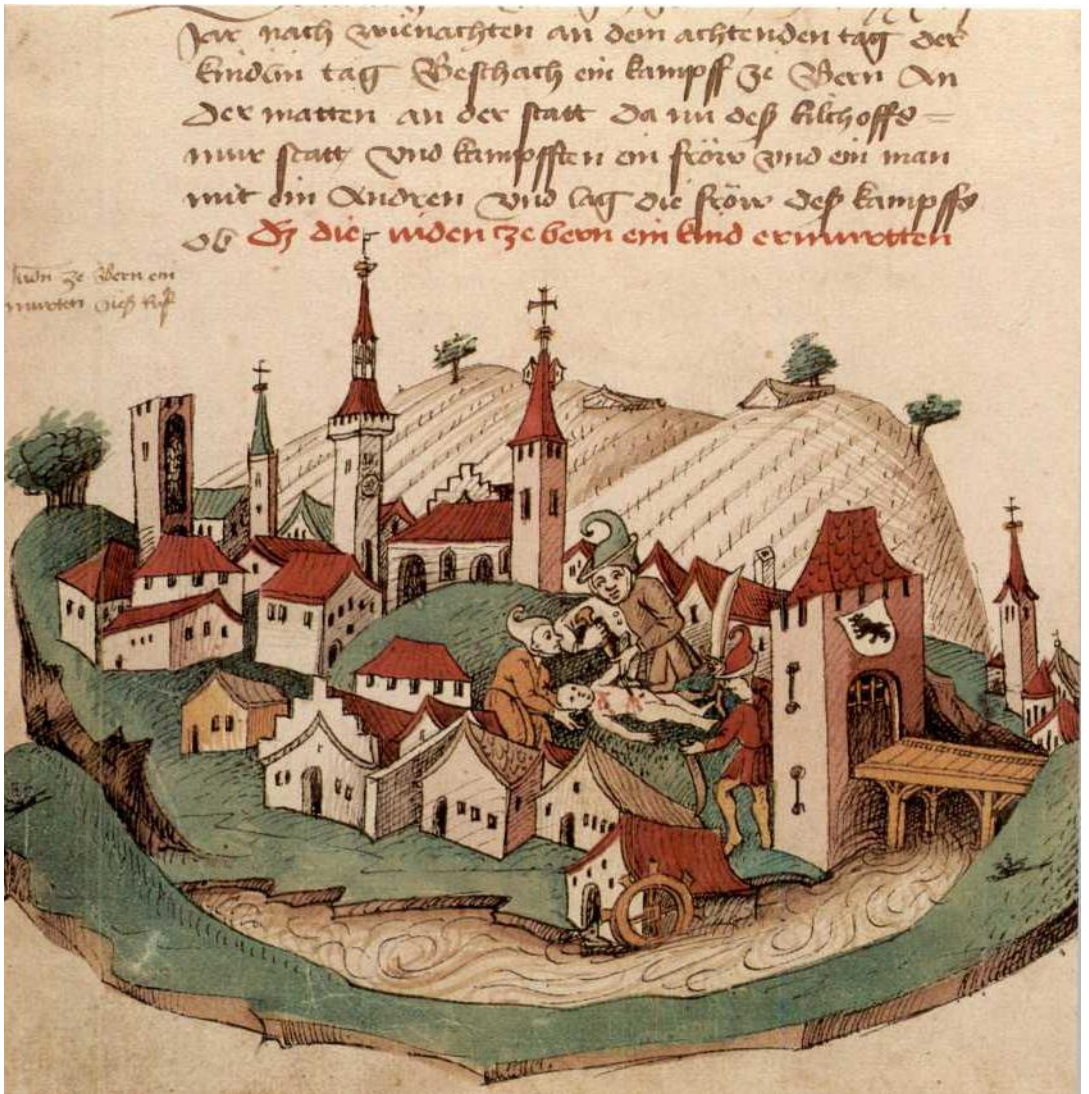 Jar nach wienachten an dem achtenden tag der
kindlin tag Beschach ein kampff ze Bern An
der matten an der statt da nu deß kilchoffs=
mur statt vnd kampfften ein fröw vnd ein man
mit ein Andren vnd lag die fröw deß kampffs
ob Dz die iuden ze bern ein kind ermurtten
ze Bern ein